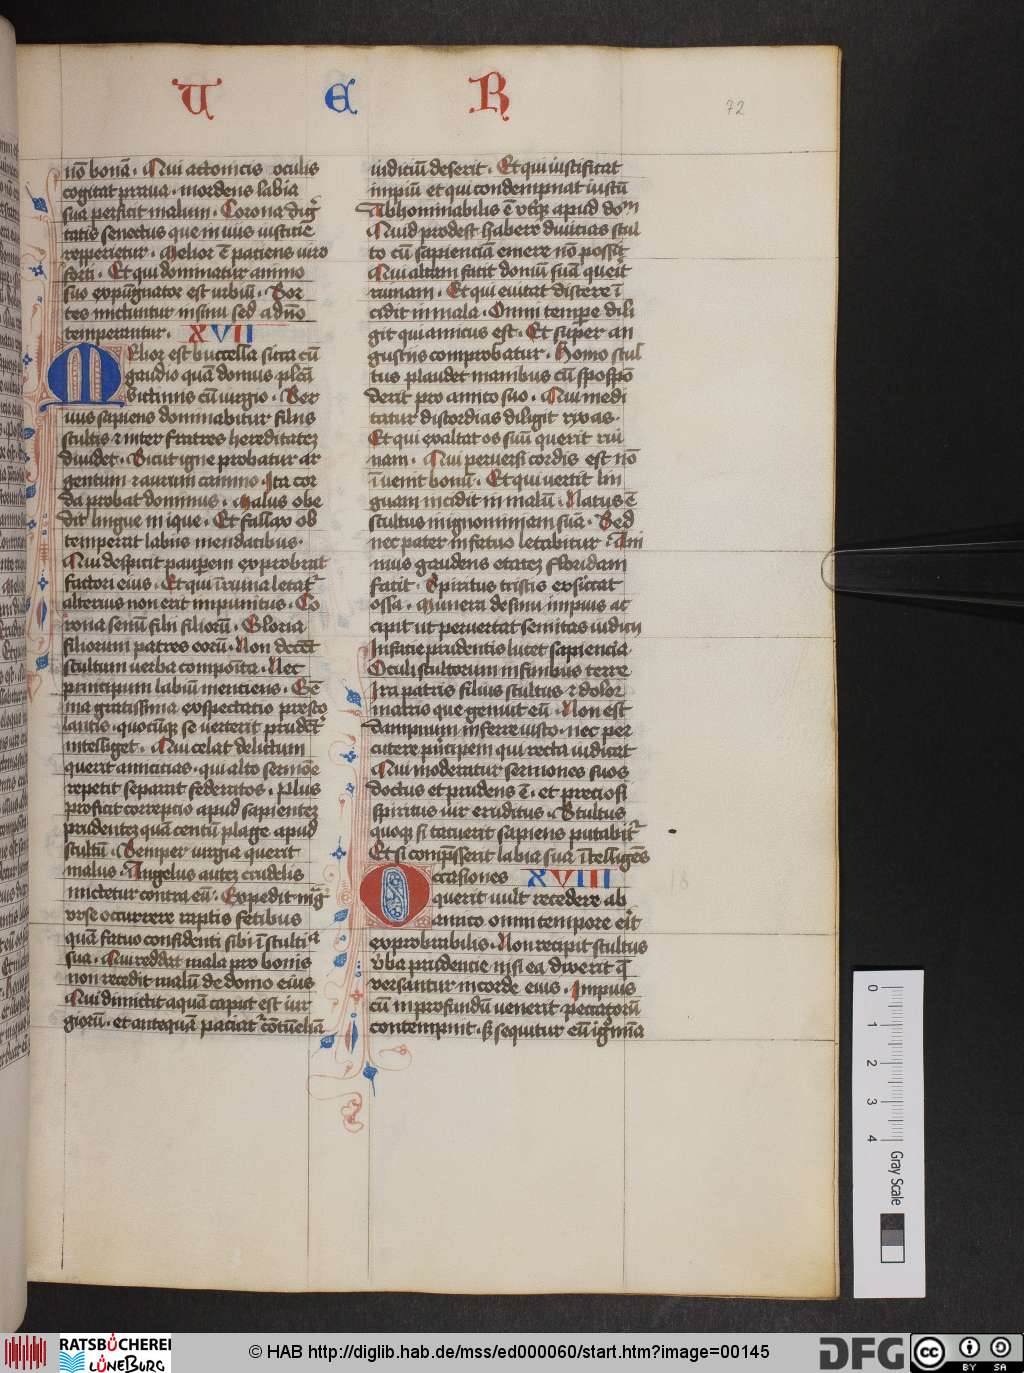 U E R
72
nō bonā. Qui attonitis oculis
cogitat praua. mordens labia
sua perficit malum. Corona dig̅
tatis senectus que in uiis iusticie
repperietur. Melior ē paciens uiro
forti. Et qui dominatur animo
suo expūgnator est urbiū. Sor
tes mictuntur in sinu sed a dn̅o
temperantur. XVII
Melior est buccella sicca cū
gaudio quā domus plenā
victimis cū iurgio. Ser
uus sapiens dominabitur filiis
stultis ⁊ inter fratres hereditatez
diuidet. Sicut igne probatur ar
gentum ⁊ aurum camino. Ita cor
da probat dominus. Malus obe
dit lingue inique. Et fallax ob
temperat labiis mendacibus.
Qui despicit pauperem exprobrat
factori eius. Et qui ī ruina letat᷑
alterius non erit impunitus. Co
rona senū filii filiorū. Gloria
filiorum patres eorū. Non decēt
stultum uerba composita. Nec
principum labiū menciens. Gē
ma gratissima exspectatio presto
lantis. quocūq se uerterit prudēt᷑
intelliget. Qui celat delictum
querit amicitias. qui alto sermōe
repetit separat federatos. Plus
proficit correpcio apud sapientez
prudentez quā centū plage apud
stultū. Semper iurgia querit
malus. Angelus autez crudelis
mictetur contra eū. Expedit mag᷑
vrse occurrere raptis fetibus
quā fatuo confidenti sibi ī stulticia
sua. Qui reddit mala pro bonis
non recedit malū de domo eius
Qui dimictit aquā caput est iur
giorū. et antequā paciat᷑ cōtumeliā
iudiciū deserit. Et qui iustificat
impiū et qui condempnat iustū
Abhominabilis ē vterq apud dom
Quid prodest habere diuicias stul
to cū sapienciā emere nō possit
Qui altum facit domū suā querit
ruinam. Et qui euitat discere ī
cidit in mala. Omni tempore dili
git qui amicus est. Et fuper an
gustiis comprobatur. Homo stul
tus plaudet manibus cū spoppō
derit pro amico suo. Qui medi
tatur discordias diligit rixas.
Et qui exaltat os suū querit rui
nam. Qui peruersi cordis est nō
īuenit bonū. Et qui uertit lin
guam incidit in malū. Natus ē
stultus in ignominiam suā. Sed
nec pater in fatuo letabitur. Ani
mus gaudens etatez floridam
facit. Spiritus tristis exsiccat
ossa. Munera de sinu impius ac
cipit ut peruertat semitas iudicii
In facie prudentis lucet sapiencia.
Oculi stultorum in finibus terre
Ira patris filius stultus ⁊ dolor
matris que genuit eū. Non est
dampnum inferre iusto. nec per
cutere principem qui recta iudicat
Qui moderatur sermones suos
doctus et prudens ē. et preciosi
spiritus uir eruditus. Stultus
quoq si tacuerit sapiens putabit᷑
Et si compresserit labia sua ītelligens
Occasiones XVIII
querit uult recedere ab
amico omni tempore erit
exprobrabilis. Non recipit stultus
v̄ba prudencie nisi ea dixerit q̄
versantur in corde eius. Impius
cū in profundū uenerit peccatorū
contempnit. s; sequitur eū ignominia
18
0 1 2 3 4
Gray Scale
RATSBÜCHEREI
LÜNEBURG
© HAB http://diglib.hab.de/mss/ed000060/start.htm?image=00145
DFG
cc
BY SA